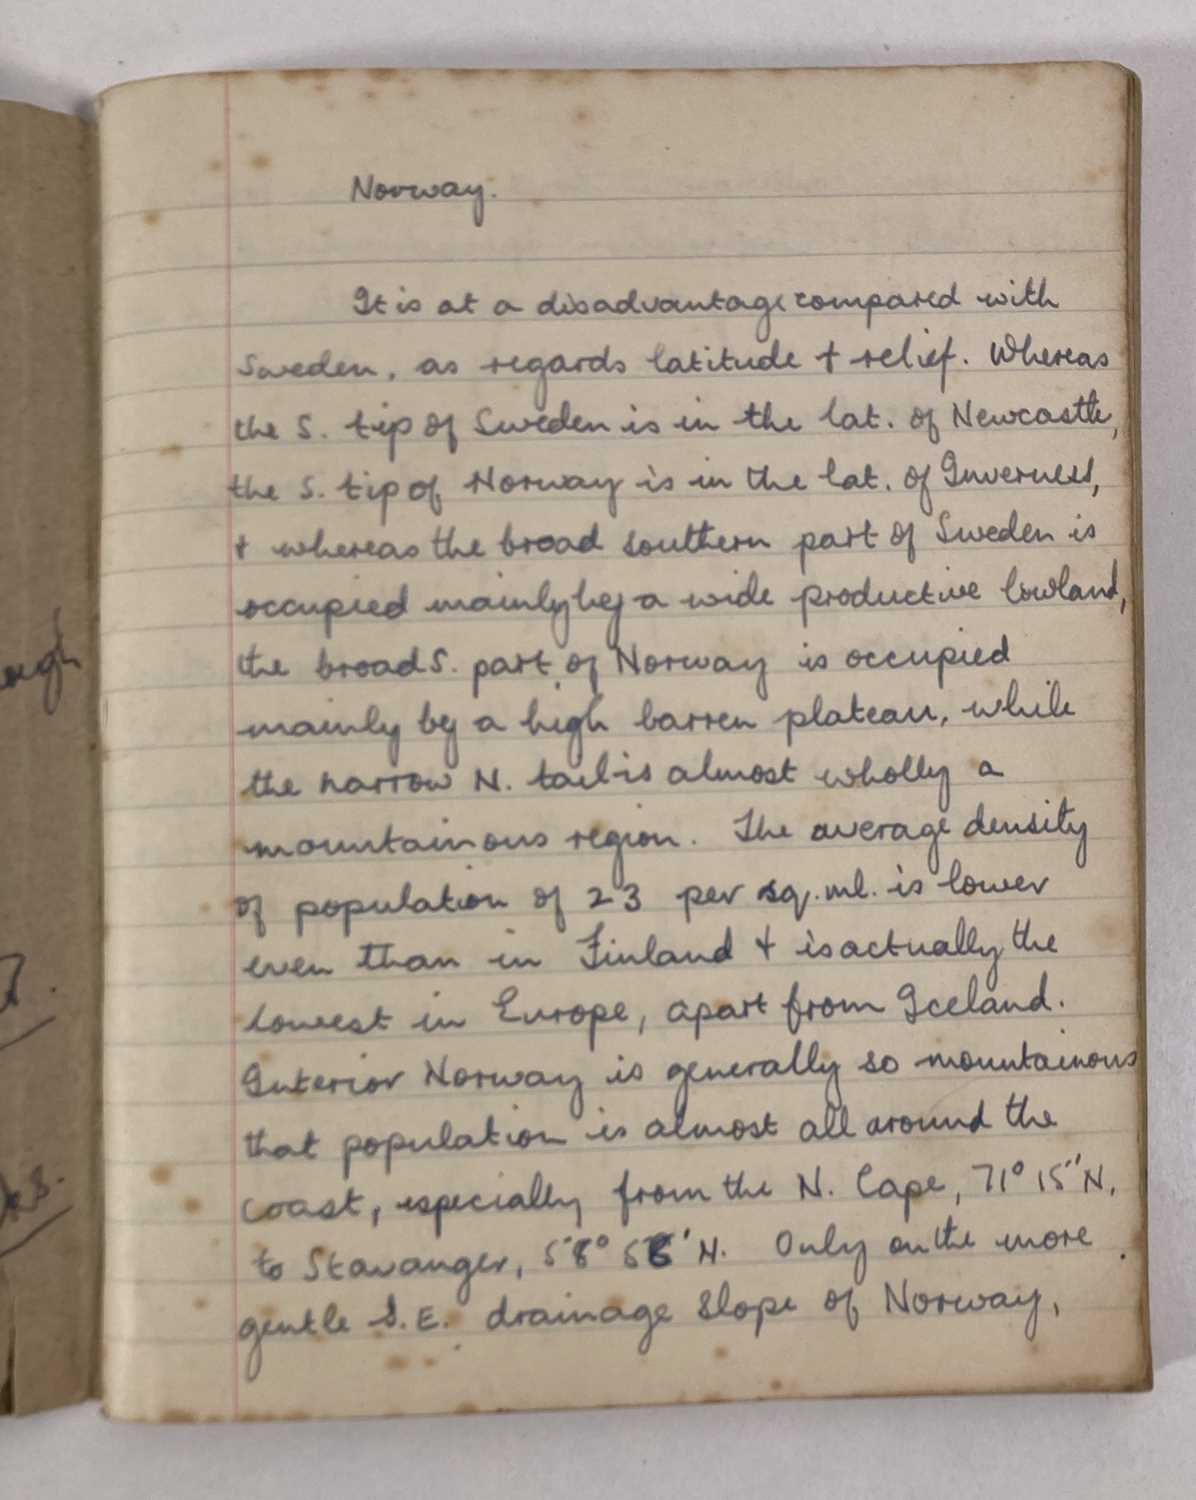 Norway.
It is at a disadvantage compared with
Sweden, as regards latitude + relief. Whereas
the S. tip of Sweden is in the lat. of Newcastle,
the S. tip of Norway is in the lat. of Inverness,
+ whereas the broad southern part of Sweden is
occupied mainly by a wide productive lowland,
the broad S. part of Norway is occupied
mainly by a high barren plateau, while
the narrow N. tail is almost wholly a
mountainous region. The average density
of population of 23 per sq. ml. is lower
even than in Finland + is actually the
lowest in Europe, apart from Iceland.
Interior Norway is generally so mountainous
that population is almost all around the
coast, especially from the N. Cape, 71° 15" N.
to Stavanger, 58° 56' N. Only on the more
gentle S.E. drainage slope of Norway,